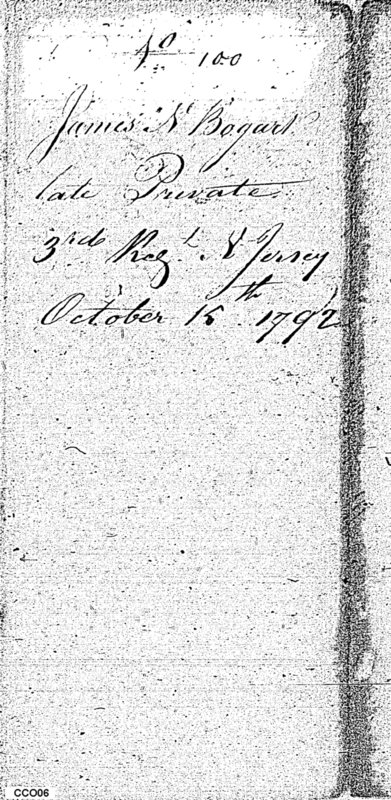 No 100
James N Bogart
late Private
3rd Regt N Jersey
October 15th 1792
CCO06